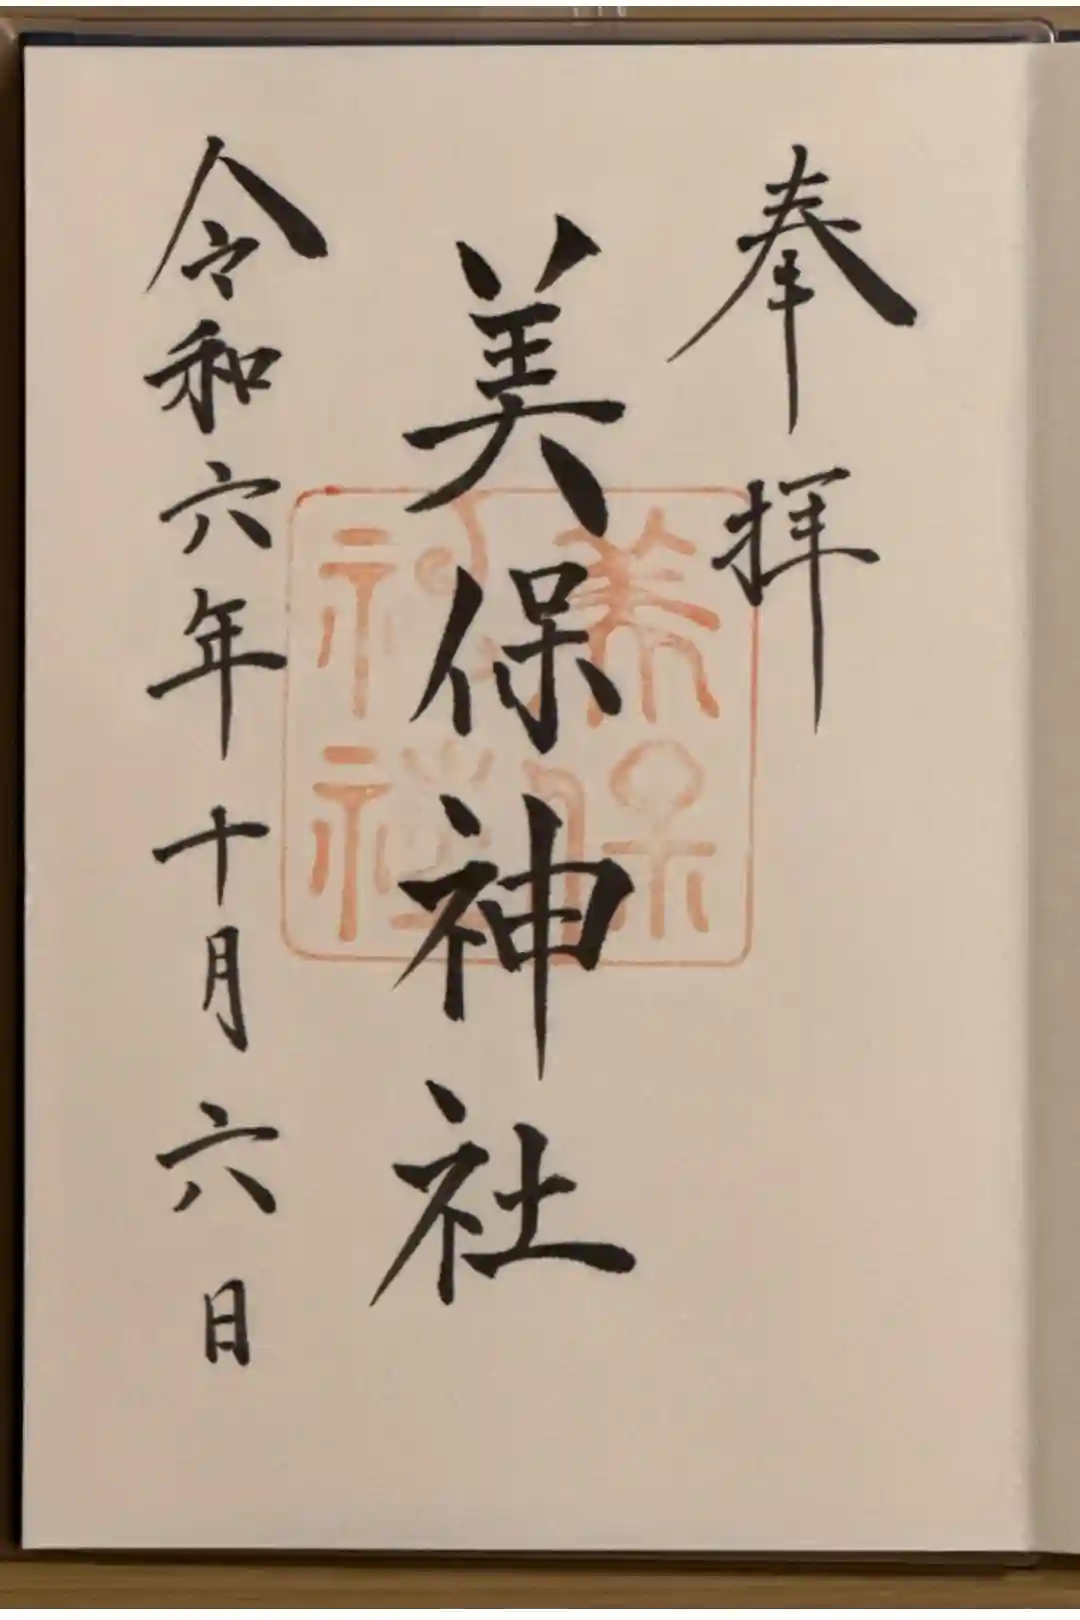 奉拝
美保神社
美保
神社
令和六年十月六日